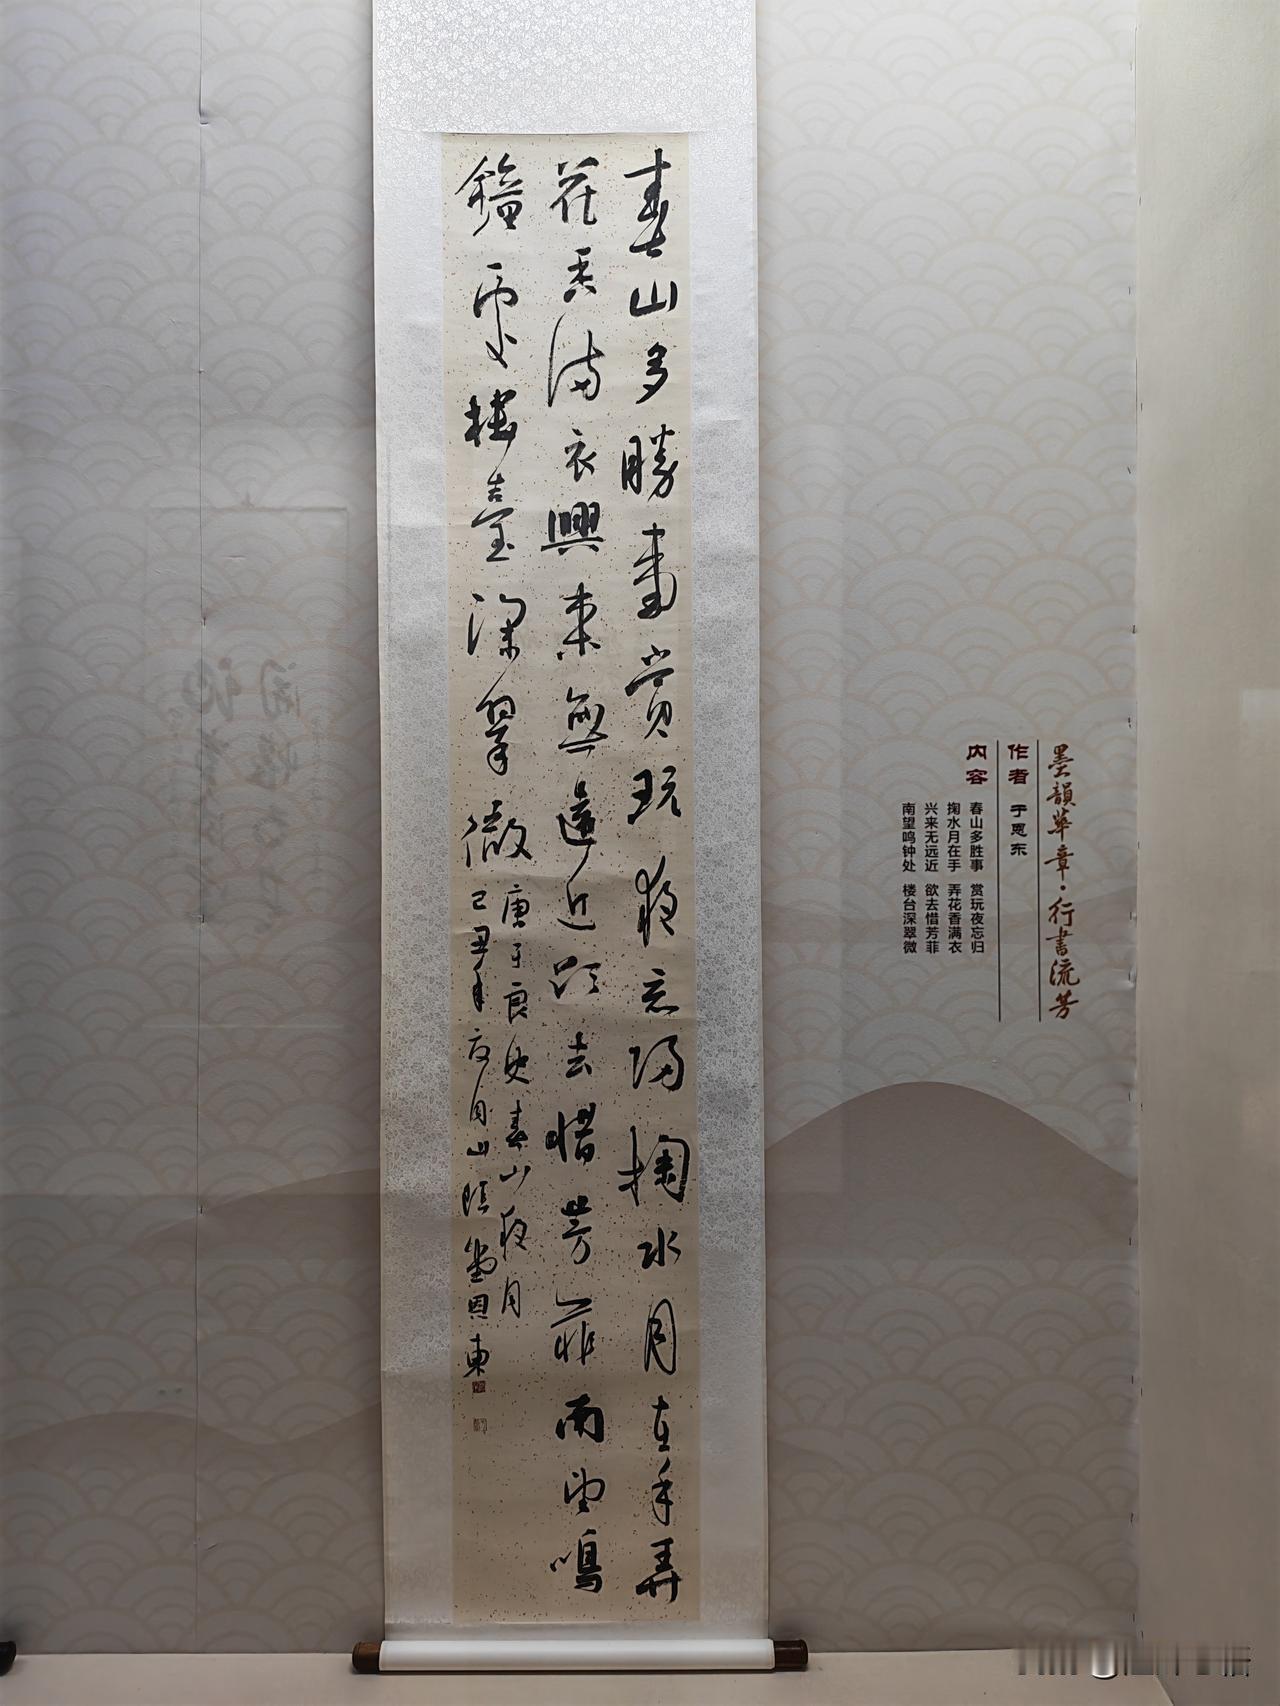 春山多勝事賞玩夜忘歸掬水月在手弄
花香滿衣興來無遠近欲去惜芳菲南望鳴
鐘處樓臺深翠微
唐于良史春山夜月
己丑年夏月山陰恩東
墨韻華章·行書流芳
作者 于恩东
内容 春山多胜事 赏玩夜忘归
掬水月在手 弄花香满衣
兴来无远近 欲去惜芳菲
南望鸣钟处 楼台深翠微